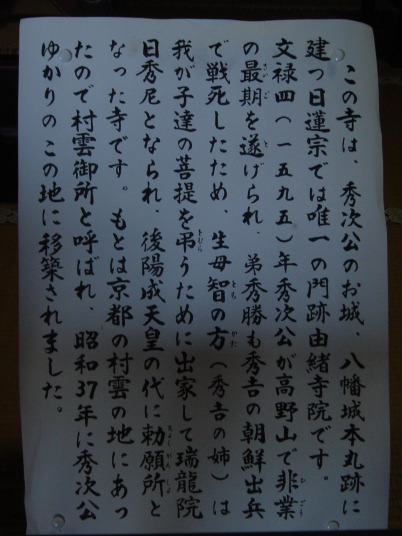 この寺は、秀次公のお城、八幡城本丸跡に
建つ日蓮宗では唯一の門跡由緒寺院です。
文禄四（一五九五）年秀次公が高野山で非業
の最期を遂げられ、弟秀勝も秀吉の朝鮮出兵
で戦死したため、生母智の方（秀吉の姉）は
我が子達の菩提を弔うために出家して瑞龍院
日秀尼となられ、後陽成天皇の代に勅願所と
なった寺です。もとは京都の村雲の地にあっ
たので村雲御所と呼ばれ、昭和37年に秀次公
ゆかりのこの地に移築されました。